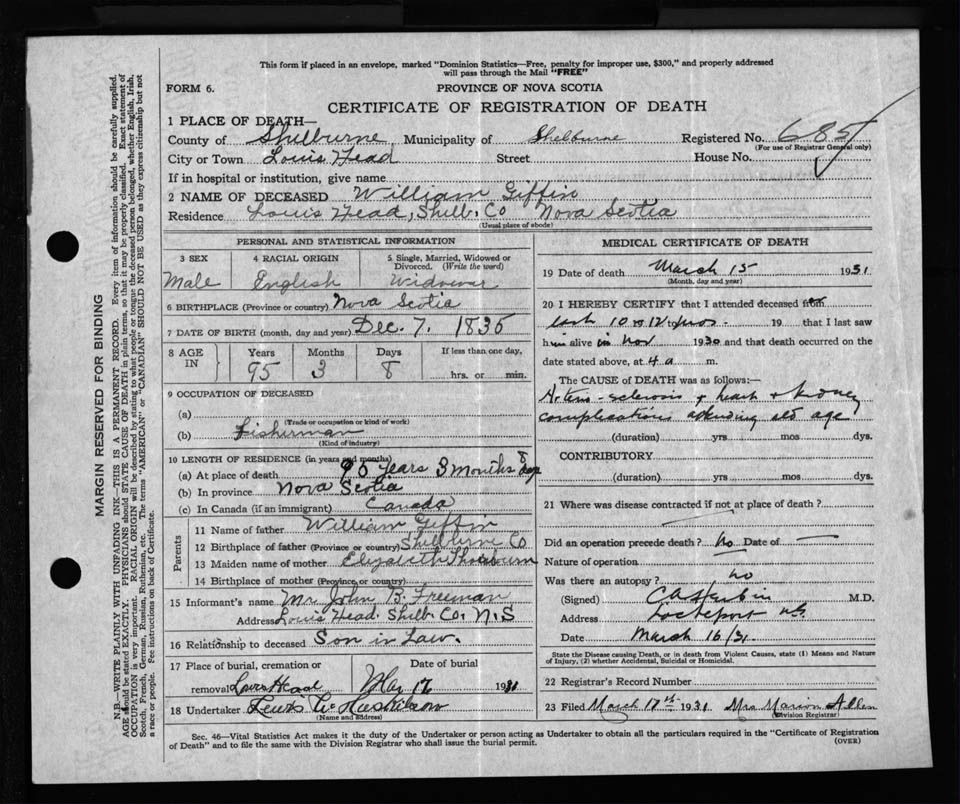 This form if placed in an envelope, marked "Dominion Statistics—Free, penalty for improper use, $300," and properly addressed
will pass through the Mail "FREE"
FORM 6.
PROVINCE OF NOVA SCOTIA
CERTIFICATE OF REGISTRATION OF DEATH
1 PLACE OF DEATH—
County of Shelburne Municipality of Shelburne Registered No. 685
(For use of Registrar General only)
City or Town Louis Head Street House No.
If in hospital or institution, give name
2 NAME OF DECEASED William Giffin
Residence Louis Head, Shelb. Co Nova Scotia
(Usual place of abode)
PERSONAL AND STATISTICAL INFORMATION
3 SEX 4 RACIAL ORIGIN 5 Single, Married, Widowed or Divorced. (Write the word)
Male English Widower
6 BIRTHPLACE (Province or country) Nova Scotia
7 DATE OF BIRTH (month, day and year) Dec. 7, 1835
8 AGE IN Years Months Days If less than one day,
95 3 8 hrs. or min.
9 OCCUPATION OF DECEASED
(a)
(Trade or occupation or kind of work)
(b) Fisherman
(Kind of industry)
10 LENGTH OF RESIDENCE (in years and months)
(a) At place of death 95 Years 3 Months 8 days
(b) In province Nova Scotia
(c) In Canada (if an immigrant) Canada
Parents
11 Name of father William Giffin
12 Birthplace of father (Province or country) Shelburne Co
13 Maiden name of mother Elizabeth
14 Birthplace of mother (Province or country)
15 Informant's name Mr John B. Freeman
Address Louis Head Shelb. Co. N.S
16 Relationship to deceased Son in Law.
17 Place of burial, cremation or Date of burial
removal Louis Head Mar 17 1931
18 Undertaker Lewis
(Name and address)
MEDICAL CERTIFICATE OF DEATH
19 Date of death March 15 1931
(Month, day and year)
20 I HEREBY CERTIFY that I attended deceased from
last 10 or 12 yrs 19 that I last saw
him alive in Nov 1930 and that death occurred on the
date stated above, at 4 a m.
The CAUSE OF DEATH was as follows:—
Arterio-sclerosis & heart & kidney
complications attending old age
(duration) yrs mos dys.
CONTRIBUTORY
(duration) yrs mos dys.
21 Where was disease contracted if not at place of death?
Did an operation precede death? No Date of —
Nature of operation
Was there an autopsy? no
(Signed) M.D.
Address Lockeport N.S.
Date March 16/31
State the Disease causing Death, or in death from Violent Causes, state (1) Means and Nature of Injury, (2) whether Accidental, Suicidal or Homicidal.
22 Registrar's Record Number
23 Filed March 17th 1931 Mrs Marion Allen
(Division Registrar)
Sec. 46—Vital Statistics Act makes it the duty of the Undertaker or person acting as Undertaker to obtain all the particulars required in the "Certificate of Registration
of Death" and to file the same with the Division Registrar who shall issue the burial permit.
(OVER)
MARGIN RESERVED FOR BINDING
N.B.—WRITE PLAINLY WITH UNFADING INK—THIS IS A PERMANENT RECORD. Every item of information should be carefully supplied.
AGE should be stated EXACTLY. PHYSICIANS should STATE CAUSE OF DEATH in plain terms, so that it may be properly classified. Exact statement of
OCCUPATION is very important. RACIAL ORIGIN will be described by stating to what people or tongue the deceased person belonged, whether English, Irish,
Scotch, French, German, Russian, Ruthenian, etc. The terms "AMERICAN" or "CANADIAN" SHOULD NOT BE USED as they express citizenship but not
a race or people. Fee instructions on back of Certificate.